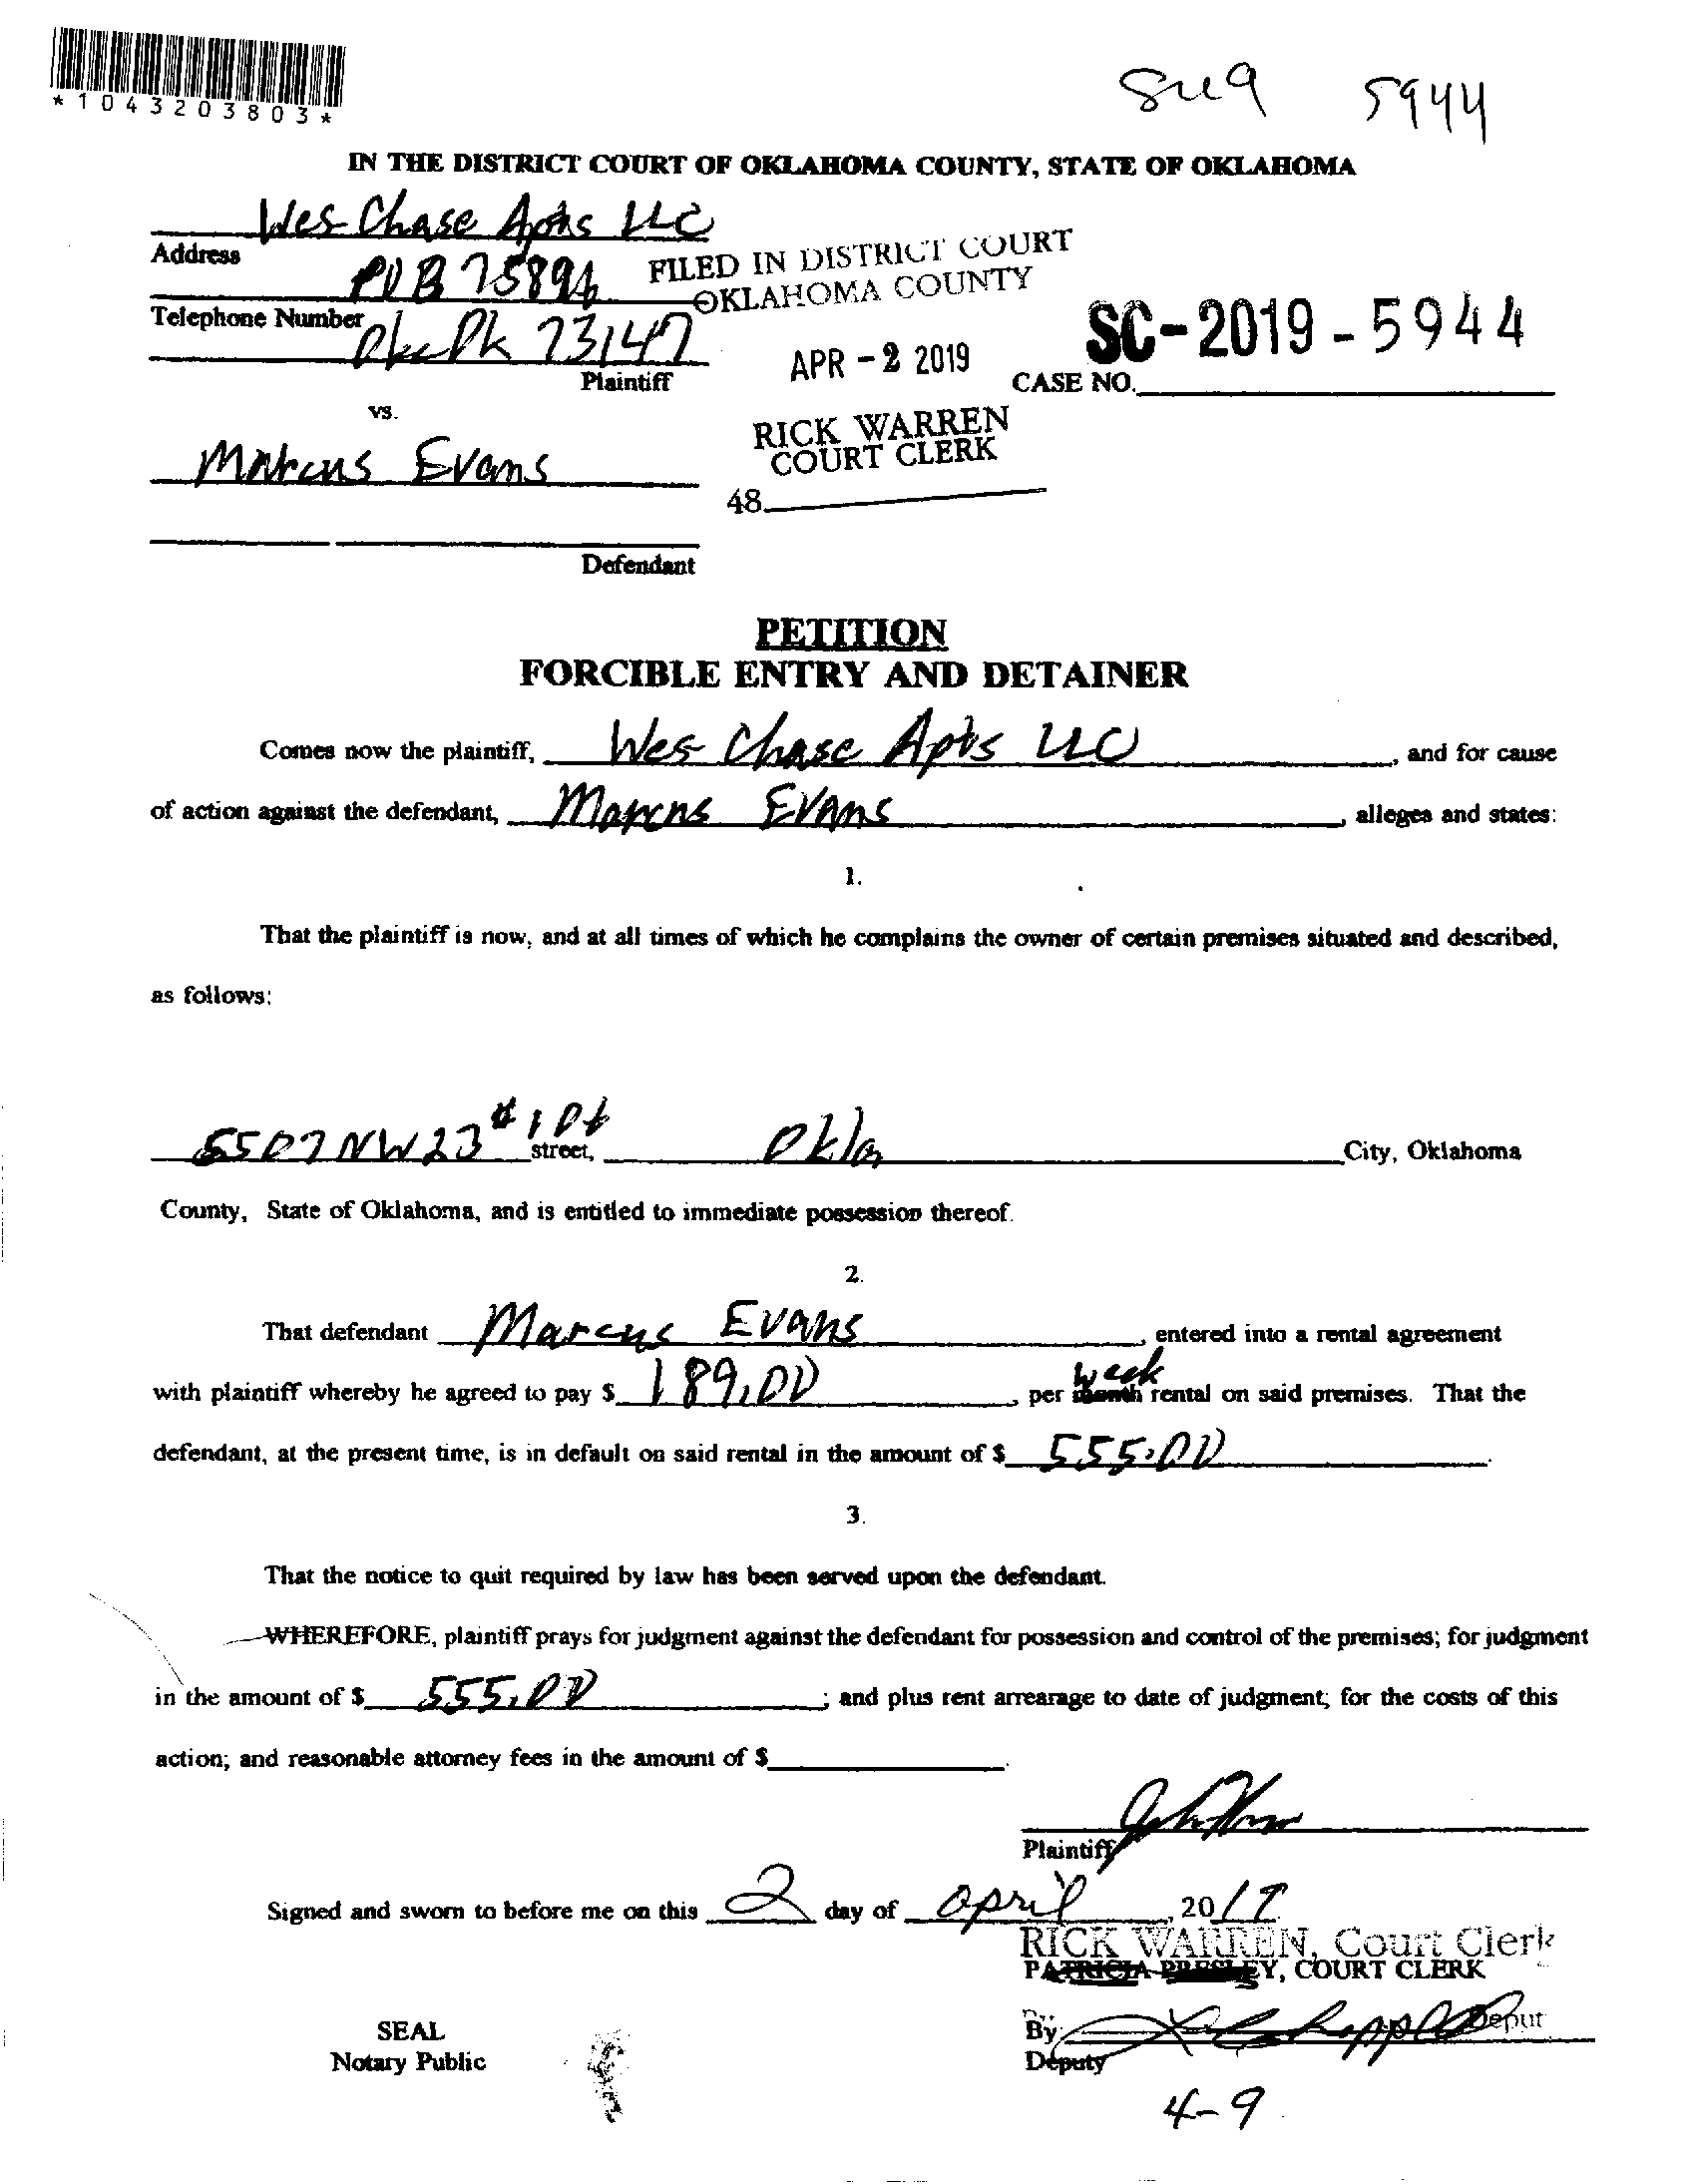 *1043203803*
5944
IN THE DISTRICT COURT OF OKLAHOMA COUNTY, STATE OF OKLAHOMA
Wes Chase Apts LLC
Address
POB 75894
FILED IN DISTRICT COURT
OKLAHOMA COUNTY
Telephone Number
Okc Ok 73147
Plaintiff
APR - 2 2019
SC-2019-5944
CASE NO.
vs.
RICK WARREN
COURT CLERK
Marcus Evans
48
Defendant
PETITION
FORCIBLE ENTRY AND DETAINER
Comes now the plaintiff, Wes Chase Apts LLC, and for cause
of action against the defendant, Marcus Evans, alleges and states:
1.
That the plaintiff is now, and at all times of which he complains the owner of certain premises situated and described,
as follows:
5507 NW 23 street, Okla City, Oklahoma
County, State of Oklahoma, and is entitled to immediate possession thereof.
2.
That defendant Marcus Evans, entered into a rental agreement
with plaintiff whereby he agreed to pay $ 189.00, per month week rental on said premises. That the
defendant, at the present time, is in default on said rental in the amount of $ 555.00.
3.
That the notice to quit required by law has been served upon the defendant.
WHEREFORE, plaintiff prays for judgment against the defendant for possession and control of the premises; for judgment
in the amount of $ 555.00; and plus rent arrearage to date of judgment; for the costs of this
action; and reasonable attorney fees in the amount of $.
Plaintiff
Signed and sworn to before me on this 2 day of April, 2019
RICK WARREN, Court Clerk
PATRICIA PRESLEY, COURT CLERK
By
Deput
SEAL
Notary Public
Deputy
4-9